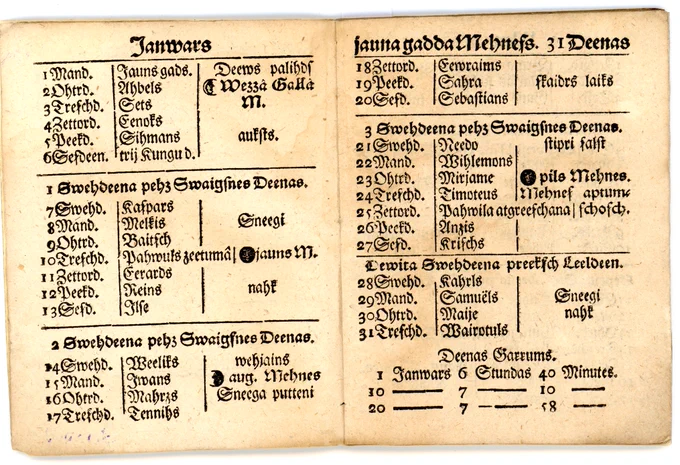 Janwars
1 Mand. Jauns gads. Deews palihds
2 Ohtrd. Ahbels ☾ Wezzâ Gallâ
3 Treschd. Sets M.
4 Zettord. Eenoks
5 Peekd. Sihmans auksts.
6 Sesdeen. trij Kungu d.
1 Swehdeena pehz Swaigsnes Deenas.
7 Swehd. Kaspars
8 Mand. Melkis Sneegi
9 Ohtrd. Baltsch
10 Treschd. Pahwuls zeetumâ jauns M.
11 Zettord. Eerards
12 Peekd. Reins nahk
13 Sesd. Ilse
2 Swehdeena pehz Swaigsnes Deenas.
14 Swehd. Weeliks wehjains
15 Mand. Iwans ☽ aug. Mehnes
16 Ohtrd. Mahrzs Sneega putteni
17 Treschd. Tennihs
jauna gadda Mehness. 31 Deenas
18 Zettord. Eewraims
19 Peekd. Sahra skaidrs laiks
20 Sesd. Sebastians
3 Swehdeena pehz Swaigsnes Deenas.
21 Swehd. Needo stipri salst
22 Mand. Wihlemons
23 Ohtrd. Mirjame pils Mehnes.
24 Treschd. Timoteus Mehnes aptum-
25 Zettord. Pahwila atgreeschana schosch.
26 Peekd. Anzis
27 Sesd. Krischs
Dewita Swehdeena preeksch Leeldeen.
28 Swehd. Kahrls
29 Mand. Samuëls Sneegi
30 Ohtrd. Maije nahk
31 Treschd. Wairotuls
Deenas Garrums.
1 Janwars 6 Stundas 40 Minutes.
10 — 7 — 10 —
20 — 7 — 58 —